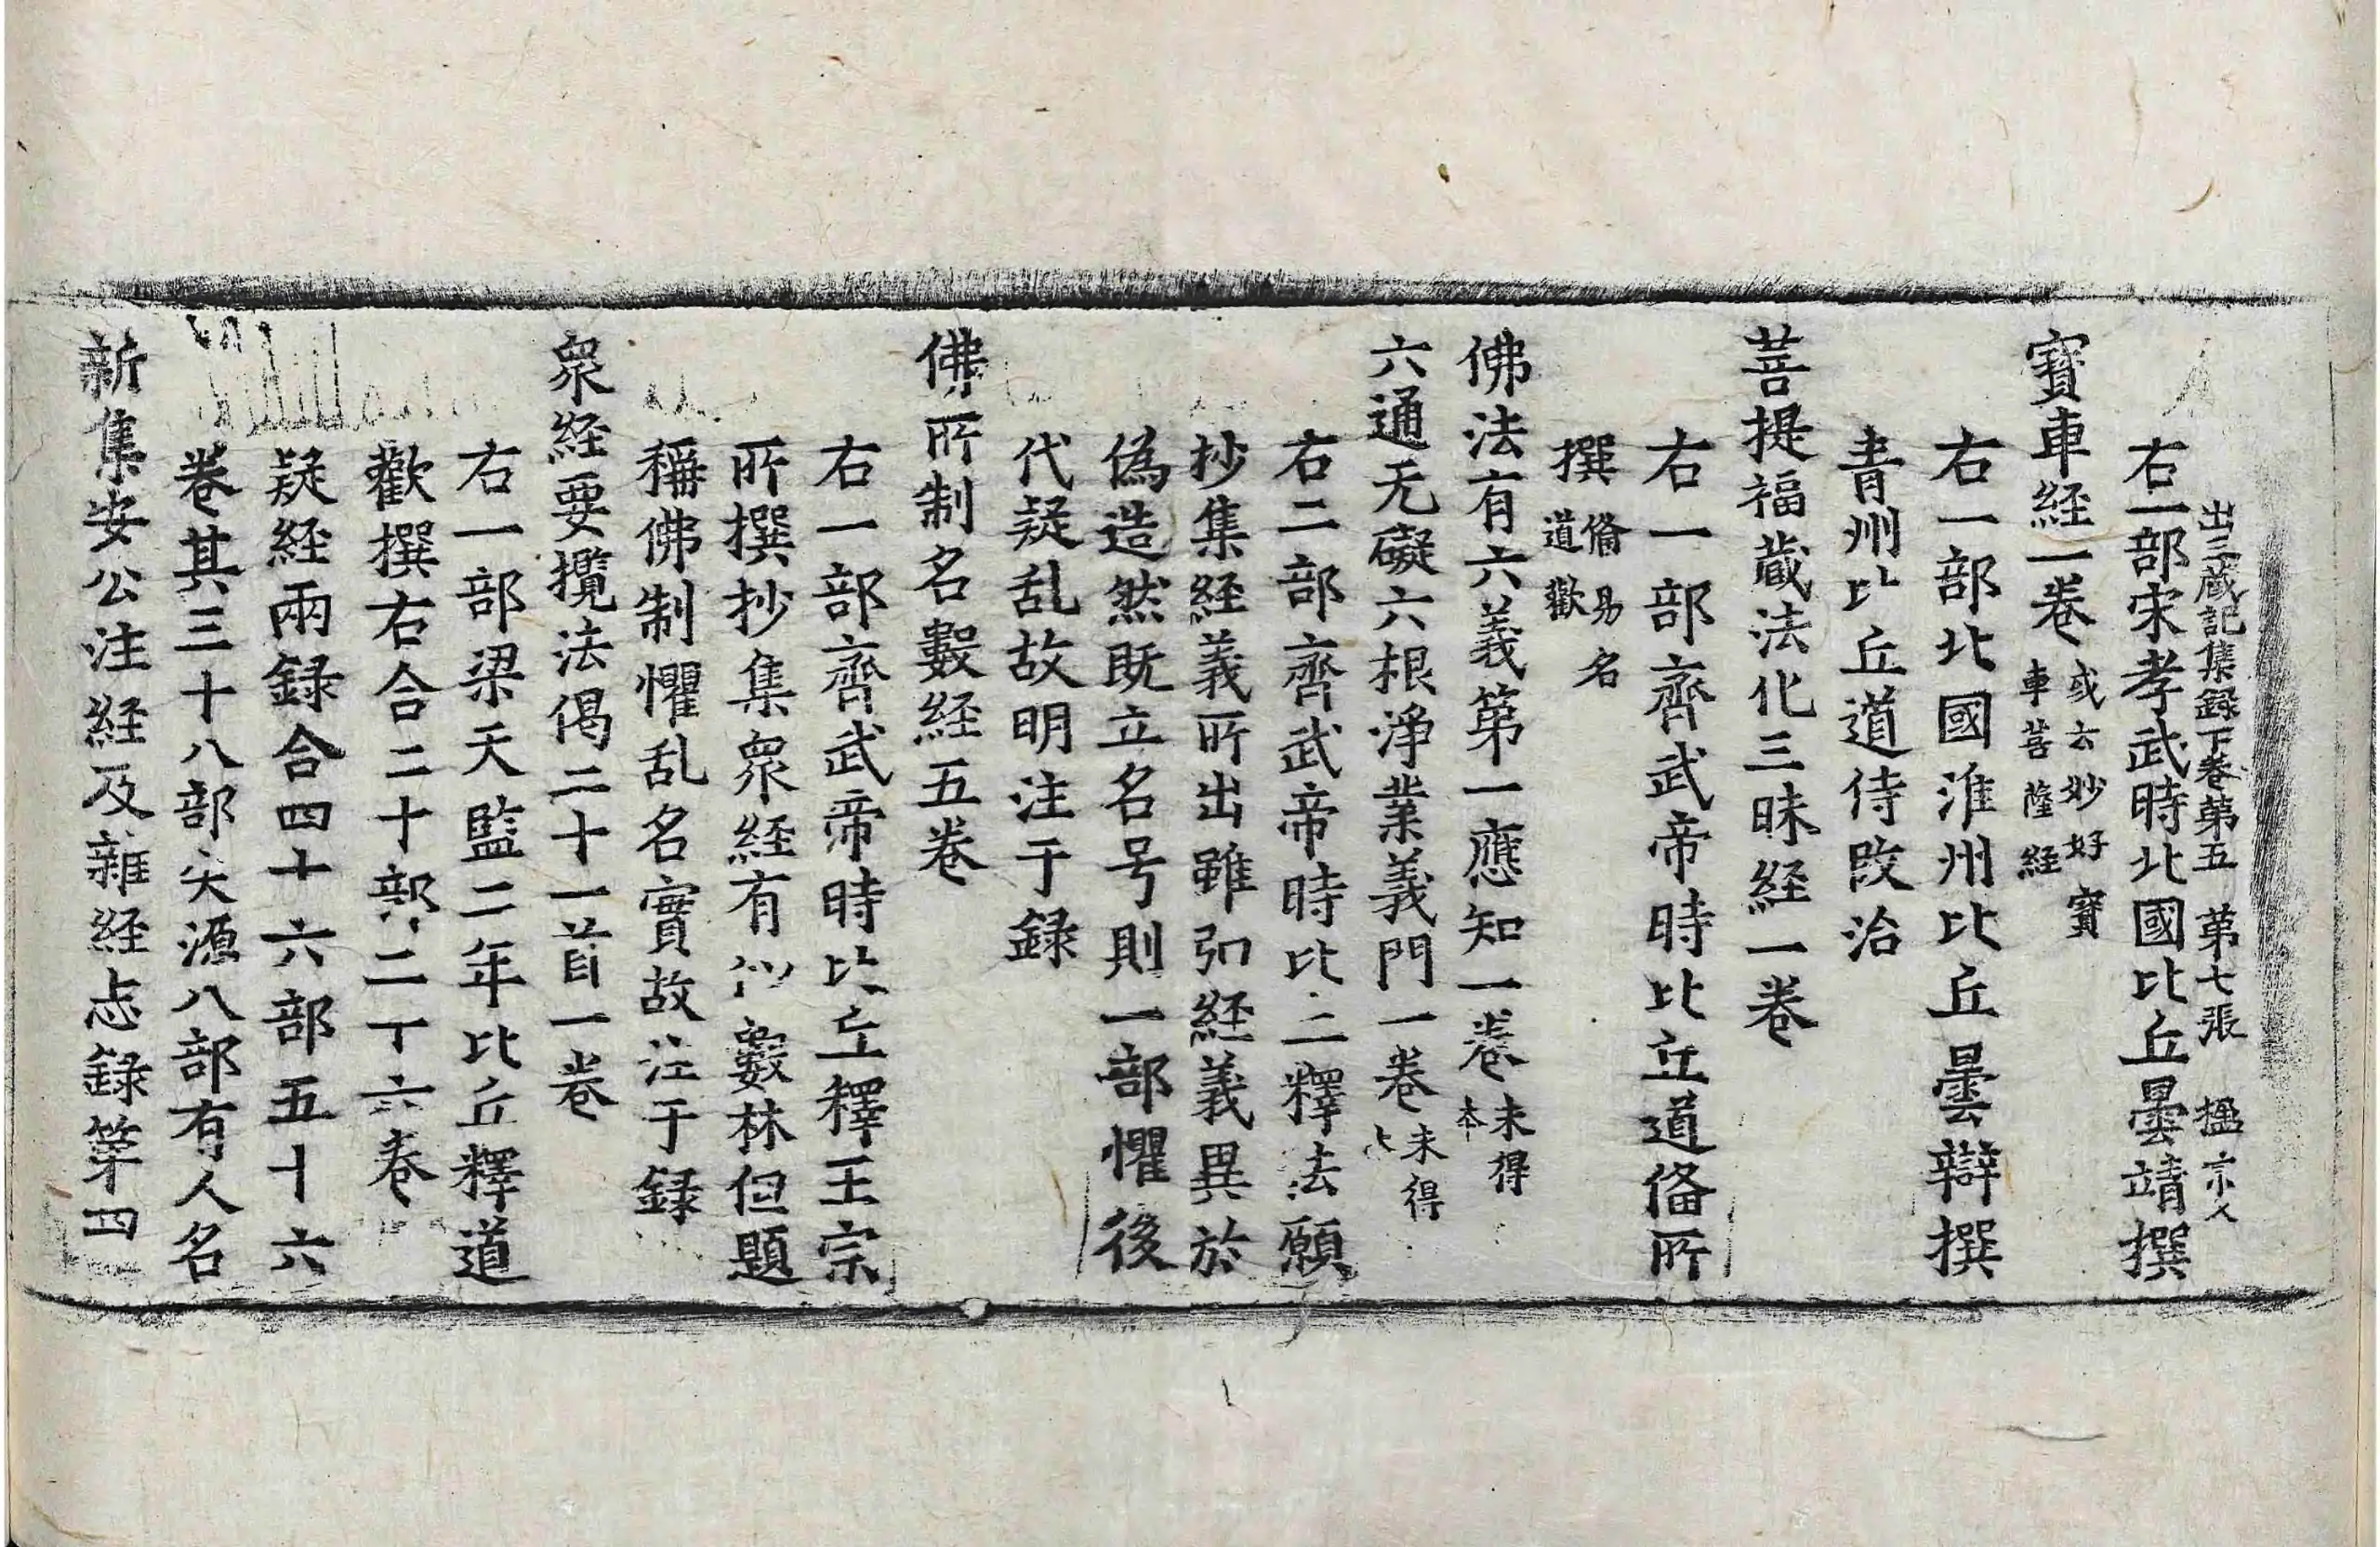 出三蔵記集録下卷第五 第七張 楹 宗人
右一部宋孝武時北國比丘曇靖撰
寶車経一卷 或云妙好寶車菩薩経
右一部北國淮州比丘曇辯撰
青州比丘道侍改治
菩提福藏法化三昧経一卷
右一部齊武帝時比丘道俻所
撰 俻易名道歡
佛法有六義第一應知一卷 未得本
六通无礙六根淨業義門一卷 未得
右二部齊武帝時比丘釋法願
抄集経義所出雖弘経義異於
偽造然既立名号則一部懼後
代疑乱故明注于録
佛所制名數経五卷
右一部齊武帝時比丘釋王宗
所撰抄集衆経有似數林但題
稱佛制懼乱名實故注于録
衆経要攬法偈二十一首一卷
右一部梁天監二年比丘釋道
歡撰右合二十部二丁六卷
疑経兩録合四十六部五十六
卷其三十八部失源八部有人名
新集安公注経及雜経志録第四